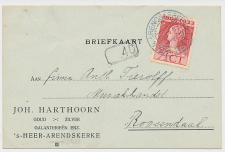 BRIEFKAART
40
AAN Firma Anth. Tierolff
Muziekhandel
Roosendaal
JOH. HARTHOORN
GOUD ZILVER
GALANTERIEËN ENZ.
's-HEER-ARENDSKERKE